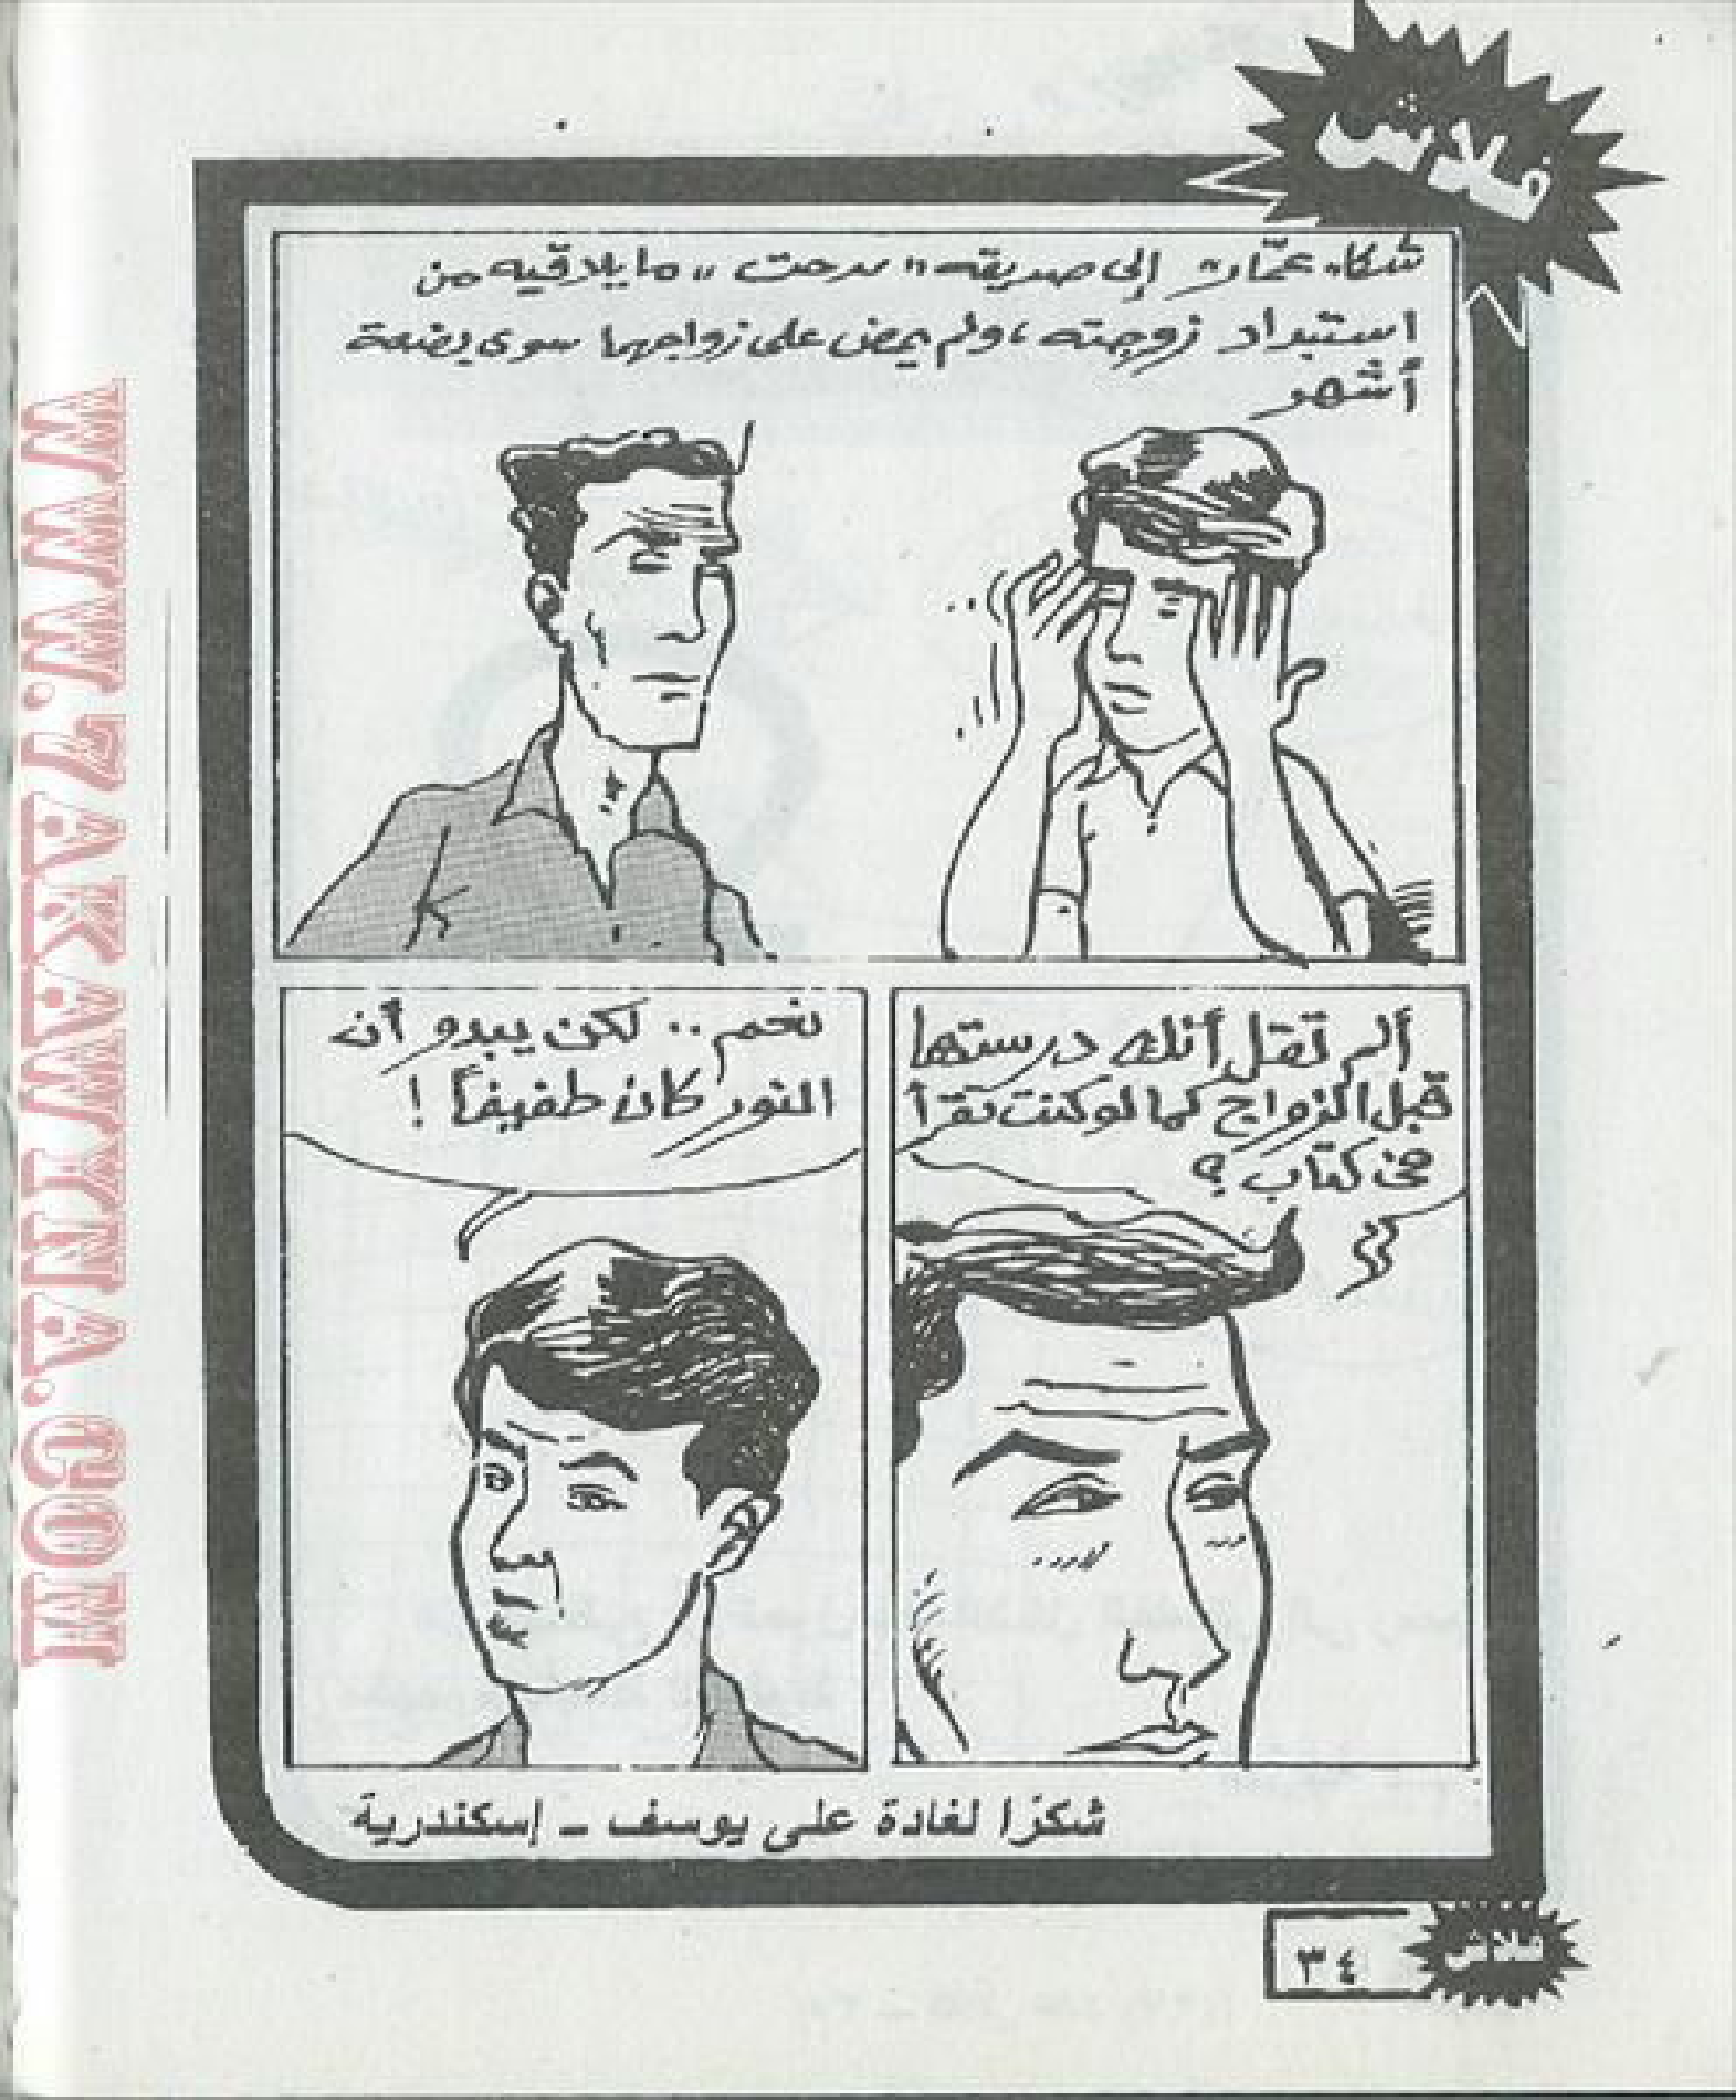 فلاش
شكا "عمّار" إلى صديقه "مدحت" ما يلاقيه من
استبداد زوجته، ولم يمض على زواجهما سوى بضعة
أشهر
ألم تقل أنك درستها
قبل الزواج كما لو كنت تقرأ
في كتاب؟
نعم.. لكن يبدو أن
النور كان طفيفاً!
شكرًا لغادة على يوسف - إسكندرية
٣٤
فلاش
WWW.7AKAWINA.COM